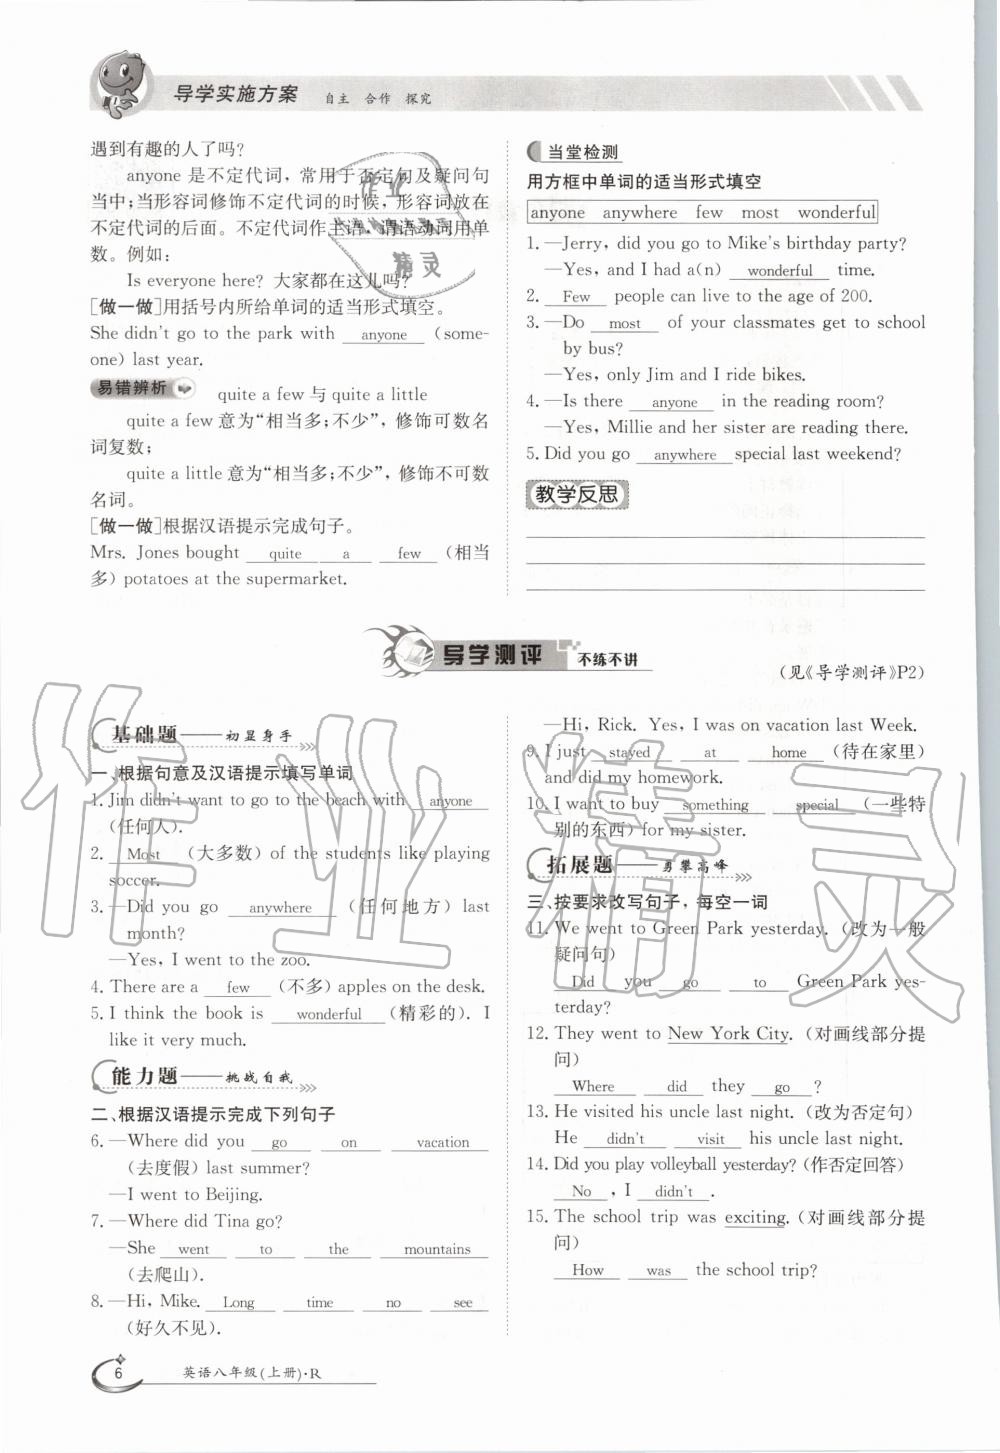 导学实施方案 自主 合作 探究
遇到有趣的人了吗?
anyone 是不定代词,常用于否定句及疑问句
当中;当形容词修饰不定代词的时候,形容词放在
不定代词的后面。不定代词作主语,谓语动词用单
数。例如:
Is everyone here? 大家都在这儿吗?
[做一做]用括号内所给单词的适当形式填空。
She didn't go to the park with anyone (some-
one) last year.
易错辨析 quite a few 与 quite a little
quite a few 意为“相当多;不少”,修饰可数名
词复数;
quite a little 意为“相当多;不少”,修饰不可数
名词。
[做一做]根据汉语提示完成句子。
Mrs. Jones bought quite a few (相当
多) potatoes at the supermarket.
当堂检测
用方框中单词的适当形式填空
anyone anywhere few most wonderful
1. —Jerry, did you go to Mike's birthday party?
—Yes, and I had a(n) wonderful time.
2. Few people can live to the age of 200.
3. —Do most of your classmates get to school
by bus?
—Yes, only Jim and I ride bikes.
4. —Is there anyone in the reading room?
—Yes, Millie and her sister are reading there.
5. Did you go anywhere special last weekend?
教学反思
导学测评 不练不讲
(见《导学测评》P2)
基础题——初显身手
一、根据句意及汉语提示填写单词
1. Jim didn't want to go to the beach with anyone
(任何人).
2. Most (大多数) of the students like playing
soccer.
3. —Did you go anywhere (任何地方) last
month?
—Yes, I went to the zoo.
4. There are a few (不多) apples on the desk.
5. I think the book is wonderful (精彩的). I
like it very much.
能力题——挑战自我
二、根据汉语提示完成下列句子
6. —Where did you go on vacation
(去度假) last summer?
—I went to Beijing.
7. —Where did Tina go?
—She went to the mountains
(去爬山).
8. —Hi, Mike. Long time no see
(好久不见).
—Hi, Rick. Yes, I was on vacation last Week.
9. I just stayed at home (待在家里)
and did my homework.
10. I want to buy something special (一些特
别的东西) for my sister.
拓展题——勇攀高峰
三、按要求改写句子,每空一词
11. We went to Green Park yesterday. (改为一般
疑问句)
Did you go to Green Park yes-
terday?
12. They went to New York City. (对画线部分提
问)
Where did they go ?
13. He visited his uncle last night. (改为否定句)
He didn't visit his uncle last night.
14. Did you play volleyball yesterday? (作否定回答)
No , I didn't .
15. The school trip was exciting. (对画线部分提
问)
How was the school trip?
6 英语八年级(上册)·R
作业精灵
作业
精灵